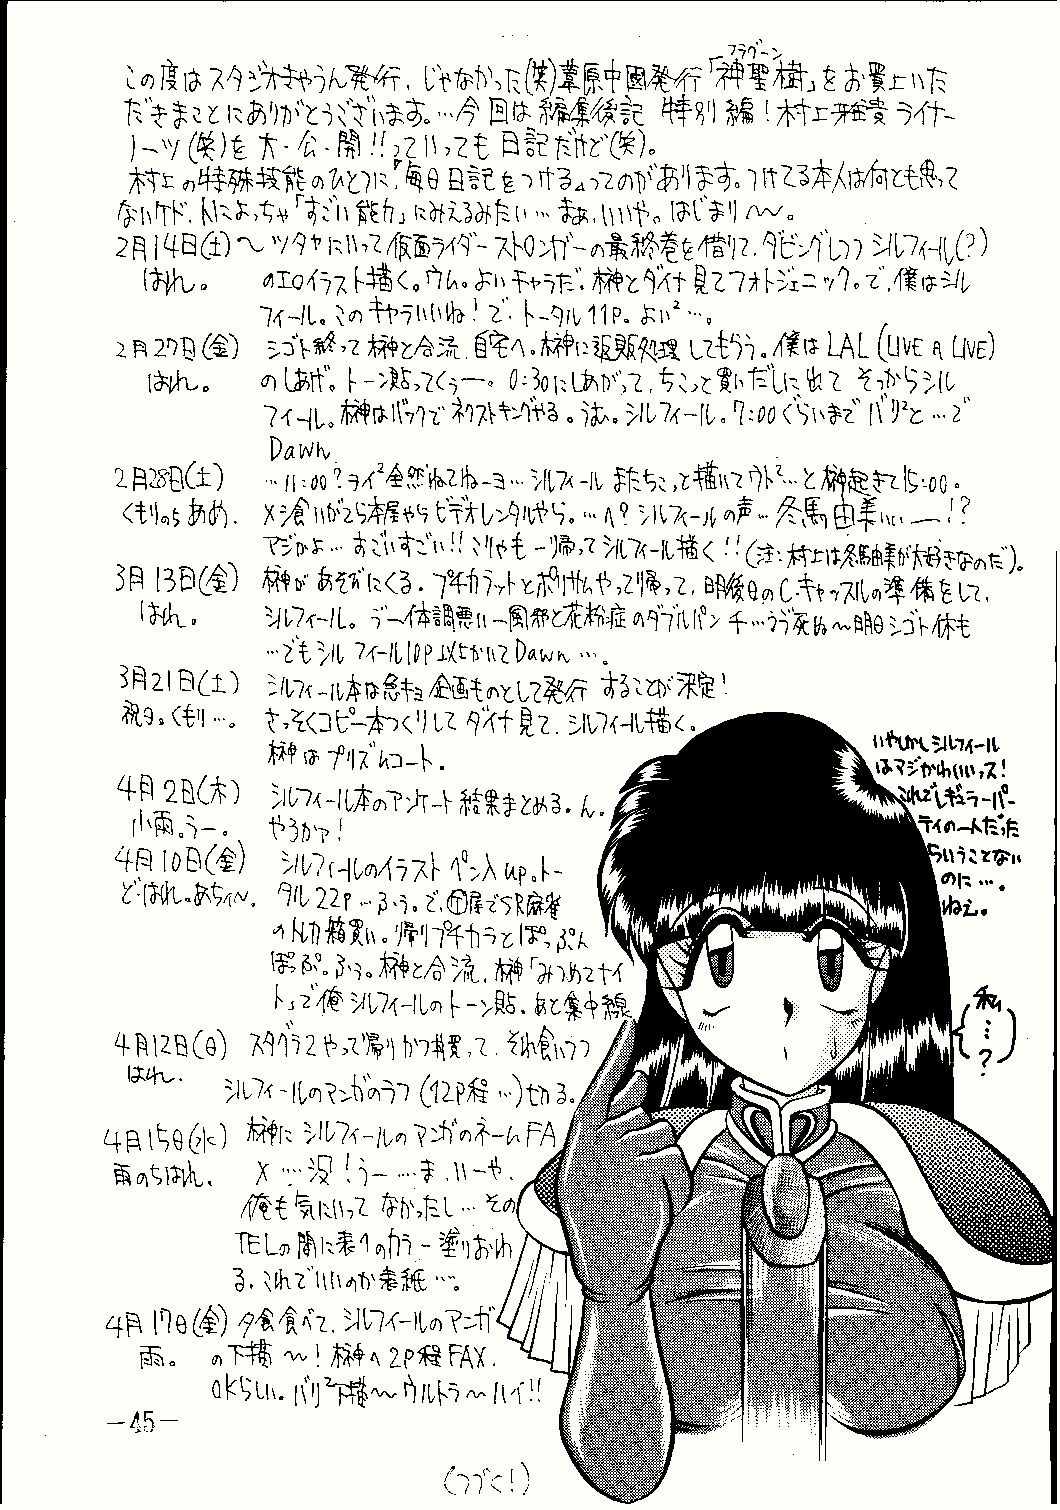 フラグーン
この度はスタジオきゃうん発行、じゃなかった(笑)葦原中國発行「神聖樹」をお買上いた
だきまことにありがとうございます。…今回は編集後記 特別編!村上雅貴ライナー
ノーツ(笑)を大・公・開!!っていっても日記だけど(笑)。
村上の特殊技能のひとつに、『毎日日記をつける』ってのがあります。つけてる本人は何とも思って
ないケド、人によっちゃ「すごい能力」にみえるみたい…まぁ、いいや。はじまり〜〜。
2月14日(土)〜ツタヤにいって仮面ライダーストロンガーの最終巻を借りて、ダビングしつつシルフィール(?)
はれ。 のエロイラスト描く。ウム。よいキャラだ。榊とダイナ見てフォトジェニック。で、僕はシル
フィール。このキャラいいね!で、トータル11P。よい²…。
2月27日(金) シゴト終って榊と合流、自宅へ。榊に返販処理してもらう。僕はLAL(LIVE A LIVE)
はれ。 のしあげ。トーン貼ってくぅー。0:30にしあがって、ちこっと買いだしに出て そっからシル
フィール。榊はバックでネクストキングやる。うむ。シルフィール。7:00ぐらいまでバリ²と…で
Dawn
2月28日(土) …11:00?ライ²全然ねてねーヨ…シルフィールまたちこっと描いてウト²…と榊起きて15:00。
くもりのち あめ. メシ食いがてら本屋やらビデオレンタルやら。…へ?シルフィールの声…冬馬由美ぃぃ——!?
マジかよ…すごいすごい!!こりゃも一帰ってシルフィール描く!!(注:村上は冬馬由美が大好きなのだ)。
3月13日(金) 榊があそびにくる。プチカラットとポリサムやって帰って、明後日のC.キャッスルの準備をして、
はれ。 シルフィール。うー体調悪い—風邪と花粉症のダブルパンチ…うう死ぬ〜明日シゴト休も
…でもシルフィール10P以上かいてDawn…。
3月21日(土) シルフィール本は急キョ企画ものとして発行することが決定!
祝日。くもり…。 さっそくコピー本つくりしてダイナ見て、シルフィール描く。
榊はプリズムコート。
4月2日(木) シルフィール本のアンケート結果まとめる。ん。
小雨。うー。 やるかァ!
4月10日(金) シルフィールのイラストペン入up。トー
ど・はれ。あちィ〜. タル22P…ふぅ。で、屋でSR麻雀
のトレカ箱買い。帰りプチカラとぱっぷん
ぱっぷ。ふぅ。榊と合流、榊「みつめてナイ
ト」で俺シルフィールのトーン貼。あと集中線
4月12日(日) スタグラ2やって帰りかつ丼買って、それ食いつつ
はれ. シルフィールのマンガのラフ(12P程…)切る。
4月15日(水) 榊にシルフィールのマンガのネームFA
雨のちはれ. X …没!うー…ま、いーや、
俺も気にいってなかったし…その
TELの間に表4のカラー塗りおわ
る。これでいいのか表紙…。
4月17日(金) 夕食食べて、シルフィールのマンガ
雨。 の下描〜!榊へ2P程FAX.
OKらしい。バリ²下描〜ウルトラ〜ハイ!!
いやしかしシルフィール
はマジかわいいっス!
これでレギュラーパー
ティの一人だった
らいうことない
のに…。
ねぇ。
私
…
?
—45—
(つづく!)